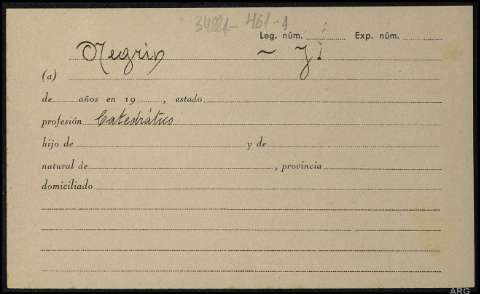 34221-461-1
Leg. núm. Exp. núm.
Negrin ~ J:
(a)
de años en 19 , estado
profesión Catedrático
hijo de y de
natural de , provincia
domiciliado
ARG